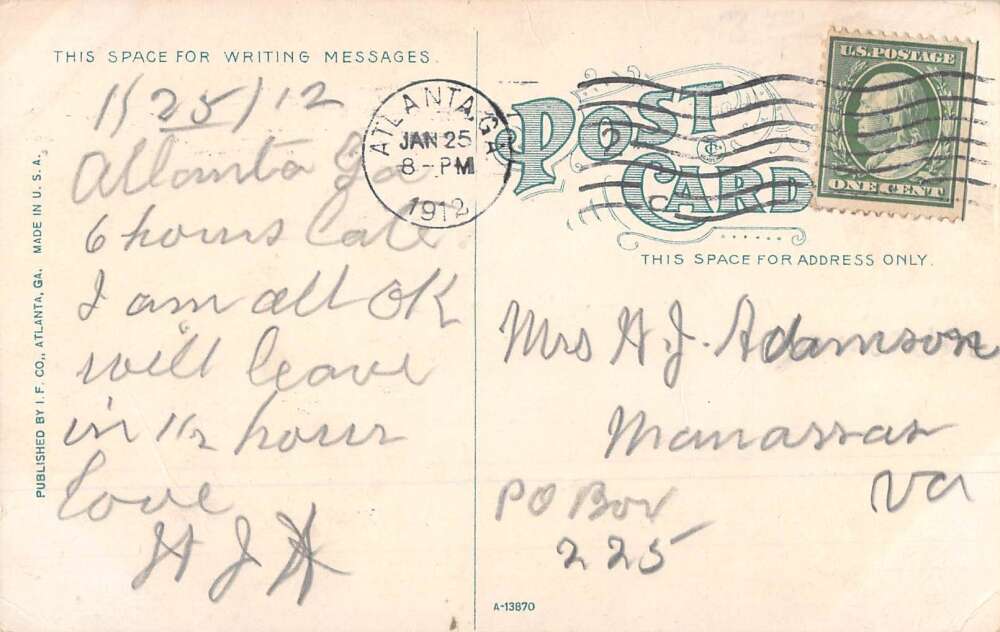 THIS SPACE FOR WRITING MESSAGES.
1/25/12
Atlanta Ga
6 hours late
I am all OK
will leave
in 1/2 hour
Love
H J A
PUBLISHED BY I. F. CO., ATLANTA, GA. MADE IN U. S. A.
ATLANTA, GA
JAN 25
8-PM
1912
POST
CARD
U.S. POSTAGE
ONE CENT
THIS SPACE FOR ADDRESS ONLY.
Mrs H. J. Adamson
Manassas
Va
PO Box
225
A-13870